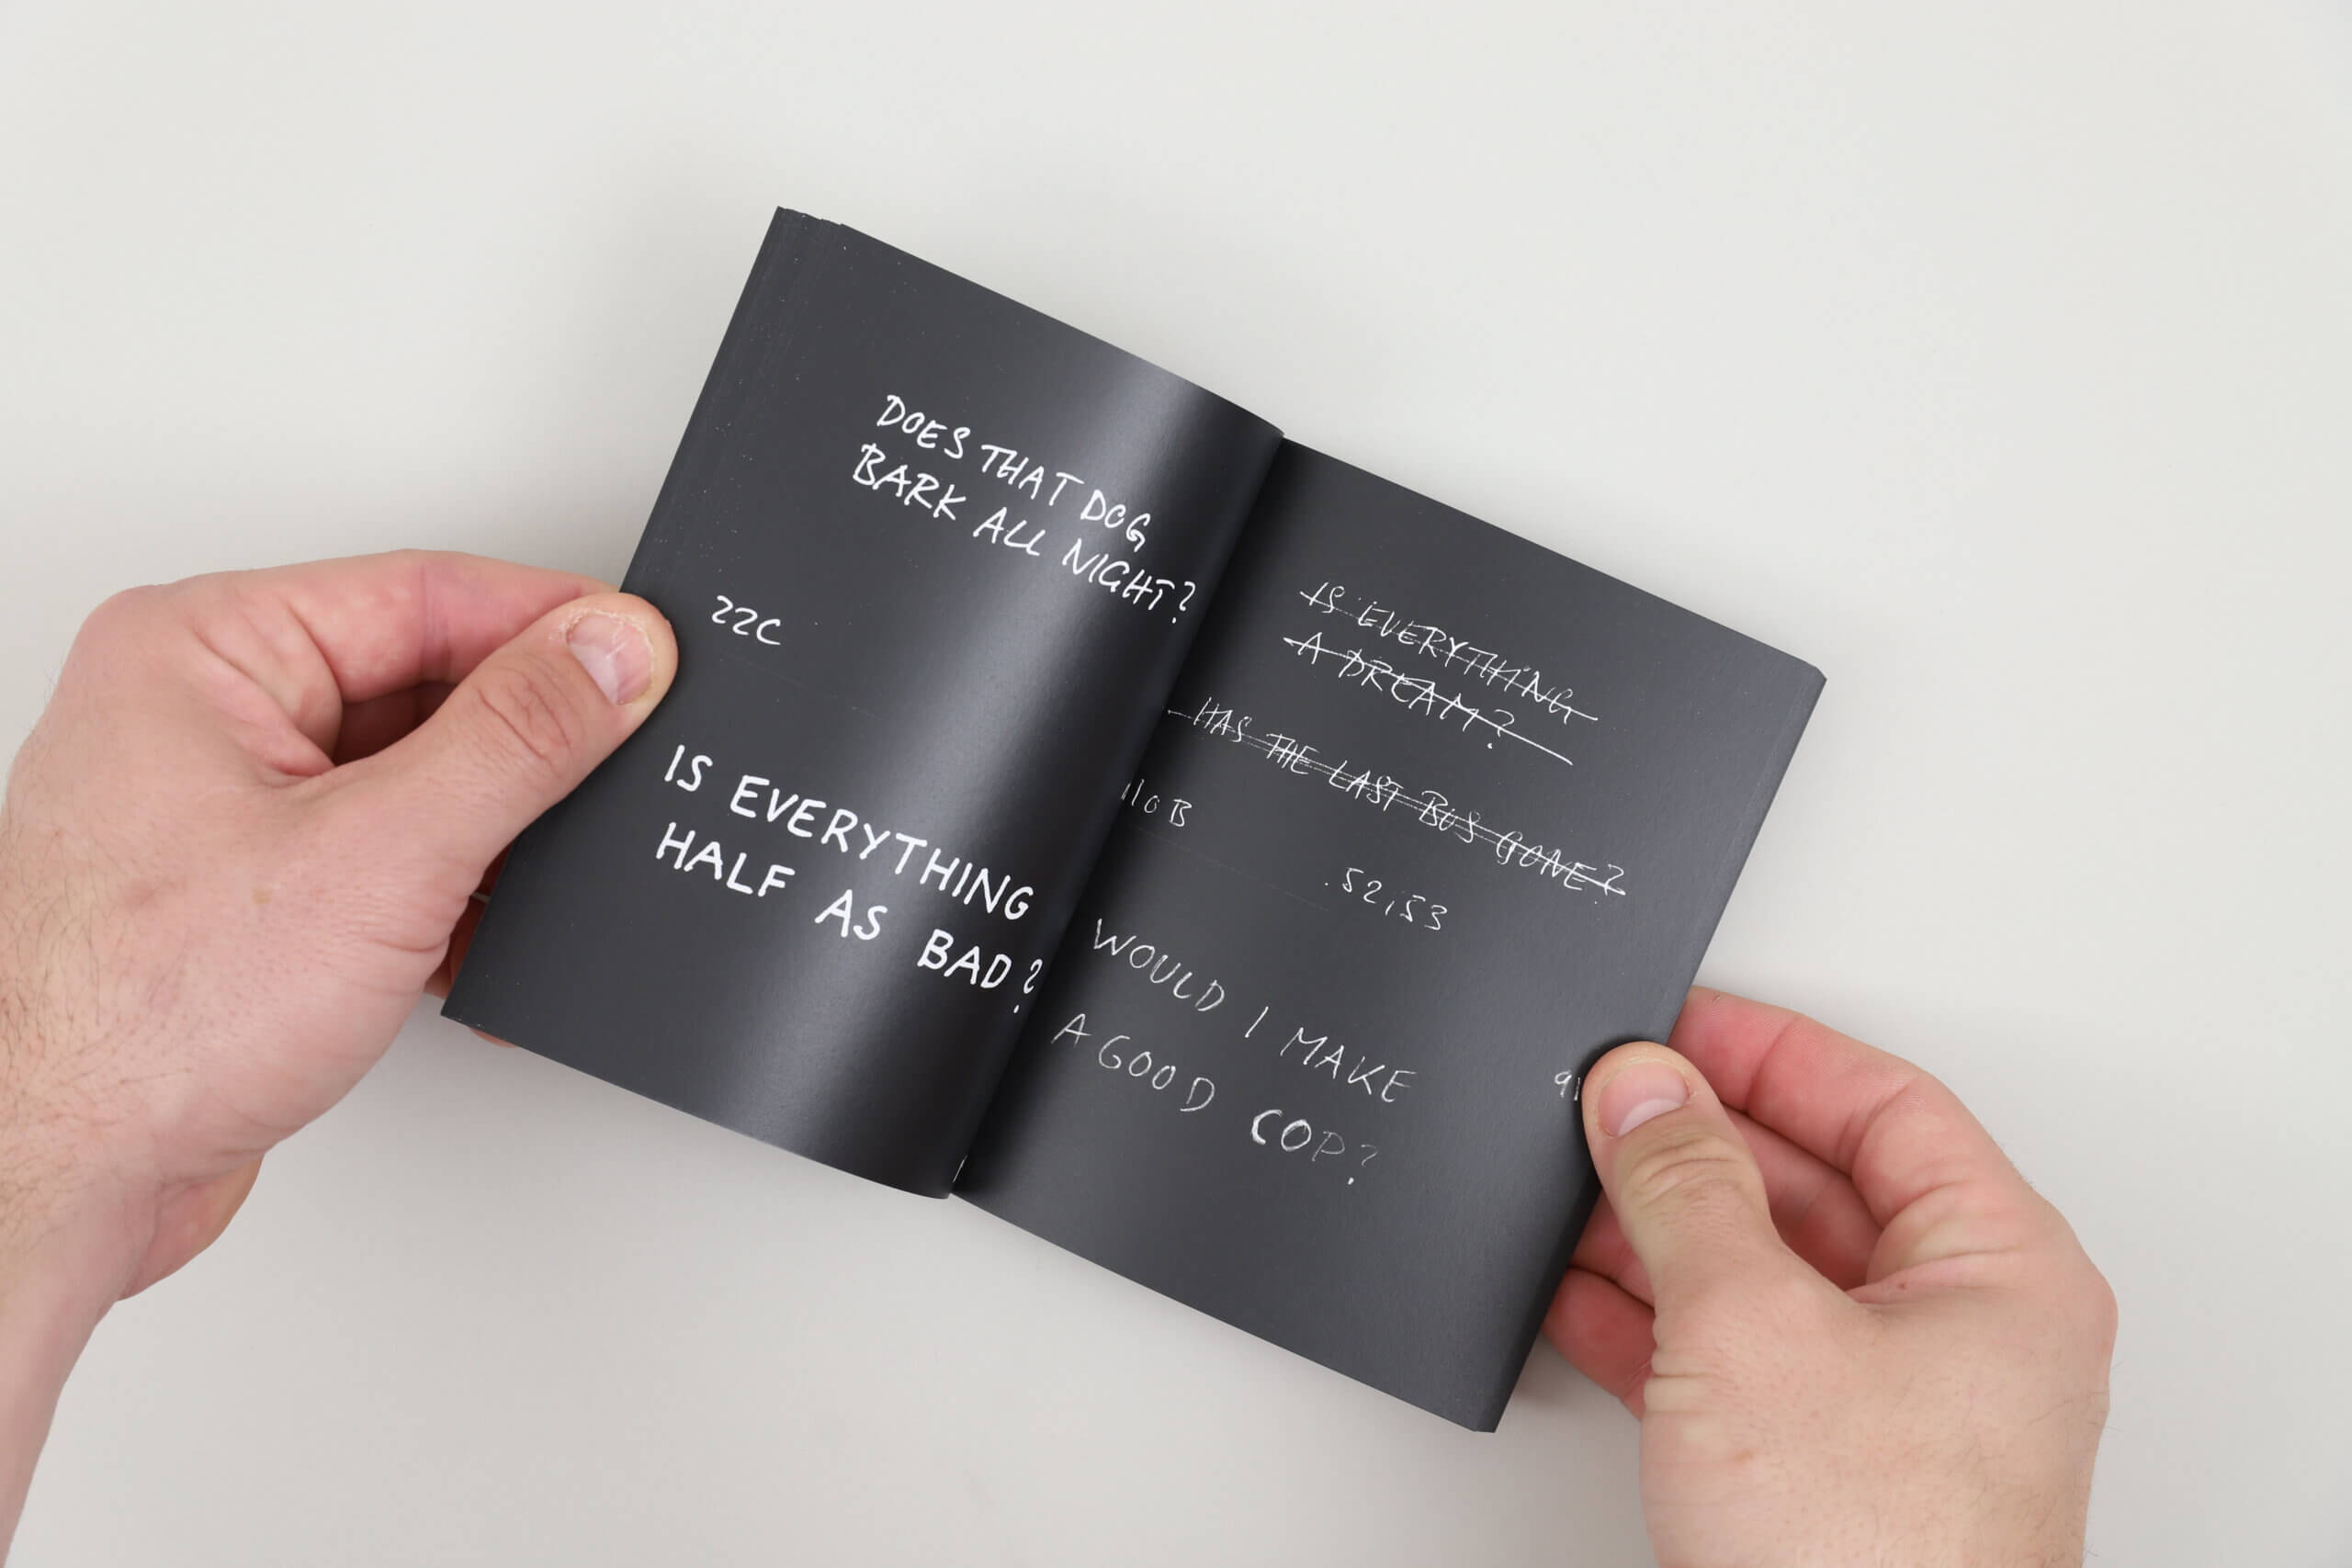 DOES THAT DOG
BARK ALL NIGHT?
22C
IS EVERYTHING
HALF AS BAD?
IS EVERYTHING
A DREAM?
HAS THE LAST BUS GONE?
110B
52,53
WOULD I MAKE
A GOOD COP?